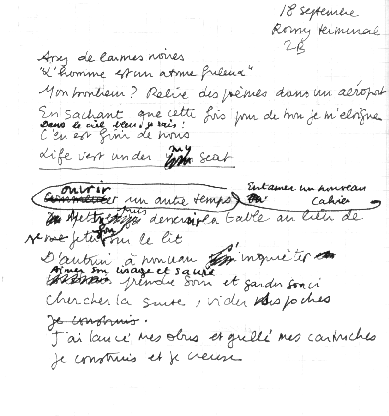 18 septembre
Romy terminal
2B
Assez de larmes noires
"L'homme est un atome
Mon bonheur? Relire des poèmes dans un aéroport
En sachant que cette fois pour de bon je m'éloigne
Dans le ciel bleu je sais:
C'en est fini de nous
Life vest under my seat
ouvrir un autre temps
Entamer un nouveau
cahier
la table au lieu de
me jeter sur le lit
D'autrui à nouveau s'inquiéter
Aimer son visage et
prendre soin et garder souci
Chercher la suite, vider poches
je construis.
J'ai lancé mes obus et grillé mes cartouches
Je construis et je creuse